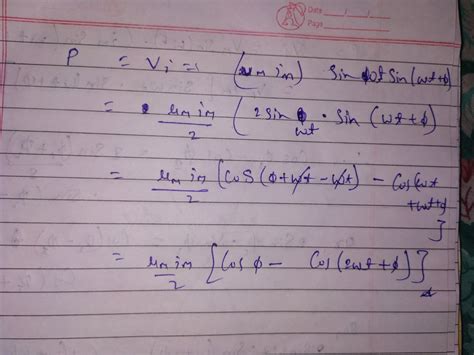 Date / /
Page
P = Vi = (υm im) Sin ωt Sin (ωt+ϕ)
= υm im/2 (2 Sin ωt . Sin (ωt + ϕ)
= υm im/2 [Cos (ϕ+ωt - ωt) - Cos(ωt +ωt+ϕ]
= υm im/2 [Cos ϕ - Cos (2ωt + ϕ)]